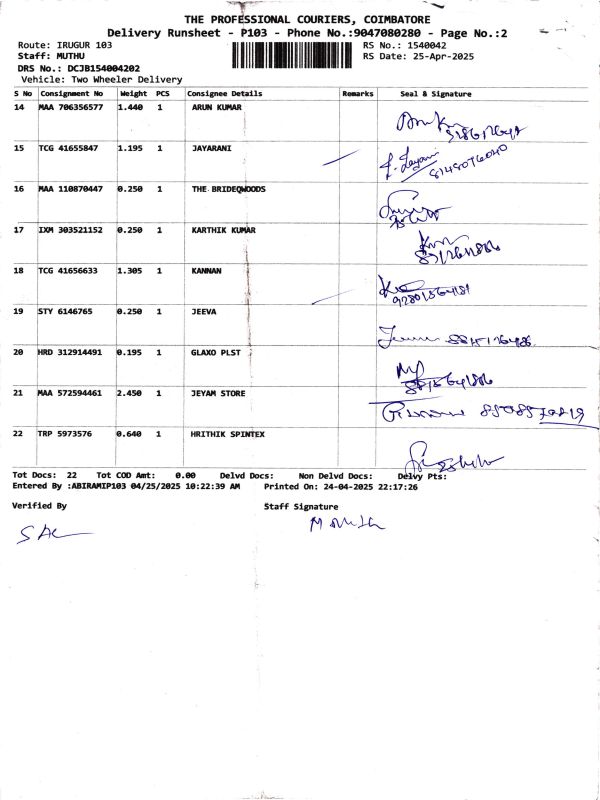 THE PROFESSIONAL COURIERS, COIMBATORE
Delivery Runsheet - P103 - Phone No.:9047080280 - Page No.:2
Route: IRUGUR 103 RS No.: 1540042
Staff: MUTHU RS Date: 25-Apr-2025
DRS No.: DCJB154004202
Vehicle: Two Wheeler Delivery
S No Consignment No Weight PCS Consignee Details Remarks Seal & Signature
14 MAA 706356577 1.440 1 ARUN KUMAR
15 TCG 41655847 1.195 1 JAYARANI
16 MAA 110870447 0.250 1 THE BRIDEQWOODS
17 IXM 303521152 0.250 1 KARTHIK KUMAR
18 TCG 41656633 1.305 1 KANNAN
19 STY 6146765 0.250 1 JEEVA
20 HRD 312914491 0.195 1 GLAXO PLST
21 MAA 572594461 2.450 1 JEYAM STORE
22 TRP 5973576 0.640 1 HRITHIK SPINTEX
Tot Docs: 22 Tot COD Amt: 0.00 Delvd Docs: Non Delvd Docs: Delvy Pts:
Entered By :ABIRAMIP103 04/25/2025 10:22:39 AM Printed On: 24-04-2025 22:17:26
Verified By Staff Signature